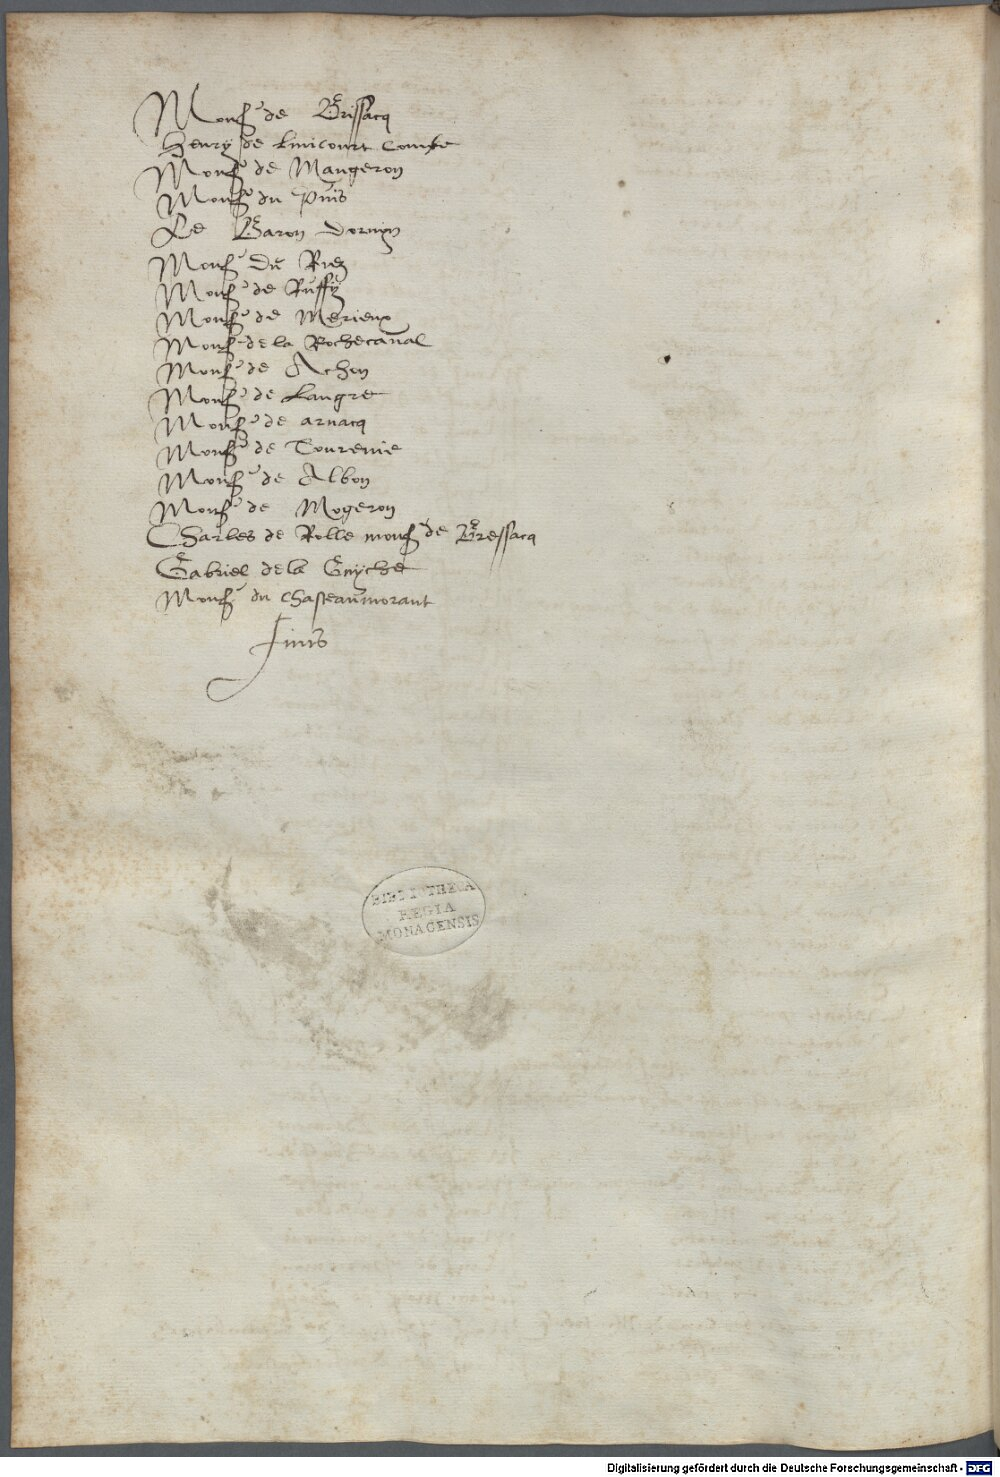 Mons.r de Brissacq
Henry de Linicourt Comte
Mons.r de Mangeron
Mons.r du Puis
Le Baron Dornin
Mons.r Du Riez
Mons.r de Ruffÿ
Mons.r de Merieux
Mons.r de la Rochecanal
Mons.r de Achon
Mons.r de Langre
Mons.r de arnacq
Mons.r de Tourenie
Mons.r de Albon
Mons.r de Mogeron
Charles de Rolle mons.r de Bressacq
Gabriel de la Guÿche
Mons.r du Chasteaumorant
finis
BIBLIOTHECA
REGIA
MONACENSIS
Digitalisierung gefördert durch die Deutsche Forschungsgemeinschaft - DFG